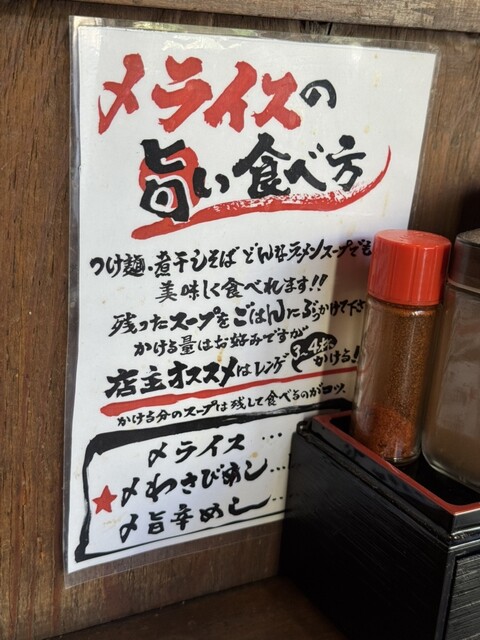 〆ライスの
旨い食べ方
つけ麺・煮干しそば どんなラーメンスープでも
美味しく食べれます!!
残ったスープをごはんにぶっかけて下さ
かける量はお好みですが
店主オススメはレンゲ3〜4杯かける!
かける分のスープは残して食べるのがコツ
〆ライス …
★〆わさびめし…
〆旨辛めし…